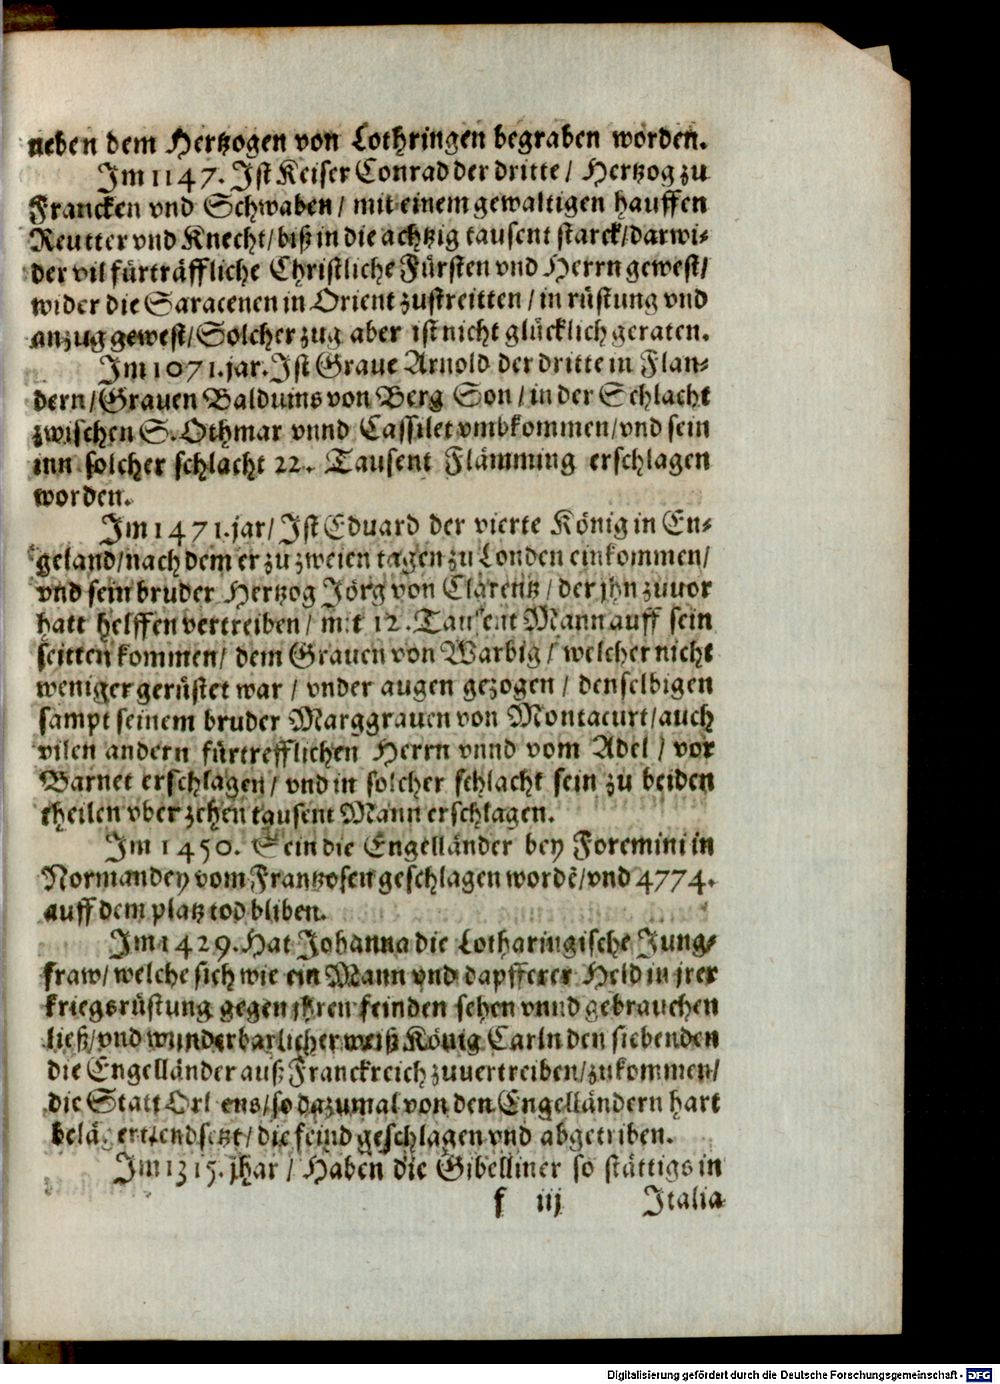 neben dem Hertzogen von Lothringen begraben worden.
Im 1147. Ist Keiser Conrad der dritte / Hertzog zu
Francken vnd Schwaben / mit einem gewaltigen hauffen
Reutter vnd Knecht / biß in die achtzig tausent starck / darwi-
der vil fürträffliche Christliche Fürsten vnd Herrn gewest /
wider die Saracenen in Orient zustreitten / in rüstung vnd
anzug gewest / Solcher zug aber ist nicht glücklich geraten.
Im 1071. jar. Ist Graue Arnold der dritte in Flan-
dern / Grauen Balduins von Berg Son / in der Schlacht
zwischen S. Othmar vnnd Cassilet vmbkommen / vnd sein
inn solcher schlacht 22. Tausent Flämming erschlagen
worden.
Im 1471. jar / Ist Eduard der vierte König in En-
geland / nach dem er zu zweien tagen zu Londen einkommen /
vnd sein bruder Hertzog Jörg von Clarentz / der jhn zuuor
hatt helffen vertreiben / mit 12. Tausent Mann auff sein
seitten kommen / dem Grauen von Warbig / welcher nicht
weniger gerüstet war / vnder augen gezogen / denselbigen
sampt seinem bruder Marggrauen von Montacurt / auch
vilen andern fürtrefflichen Herrn vnnd vom Adel / vor
Barnet erschlagen / vnd in solcher schlacht sein zu beiden
theilen vber zehen tausent Mann erschlagen.
Im 1450. Sein die Engelländer bey Foremini in
Normandey vom Frantzosen geschlagen wordẽ / vnd 4774.
auff dem platz tod bliben.
Im 1429. Hat Johanna die Lotharingische Jung-
fraw / welche sich wie ein Mann vnd dapfferer Held in jrer
kriegsrüstung gegen jhren feinden sehen vnnd gebrauchen
ließ / vnd wunderbarlicher weiß König Carln den siebenden
die Engelländer auß Franckreich zuuertreiben / zukommen /
die Statt Orl ens / so dazumal von den Engelländern hart
belägert / endsetzt / die feind geschlagen vnd abgetriben.
Im 1315. jhar / Haben die Gibelliner so stättigs in
f iij Italia
Digitalisierung gefördert durch die Deutsche Forschungsgemeinschaft - DFG